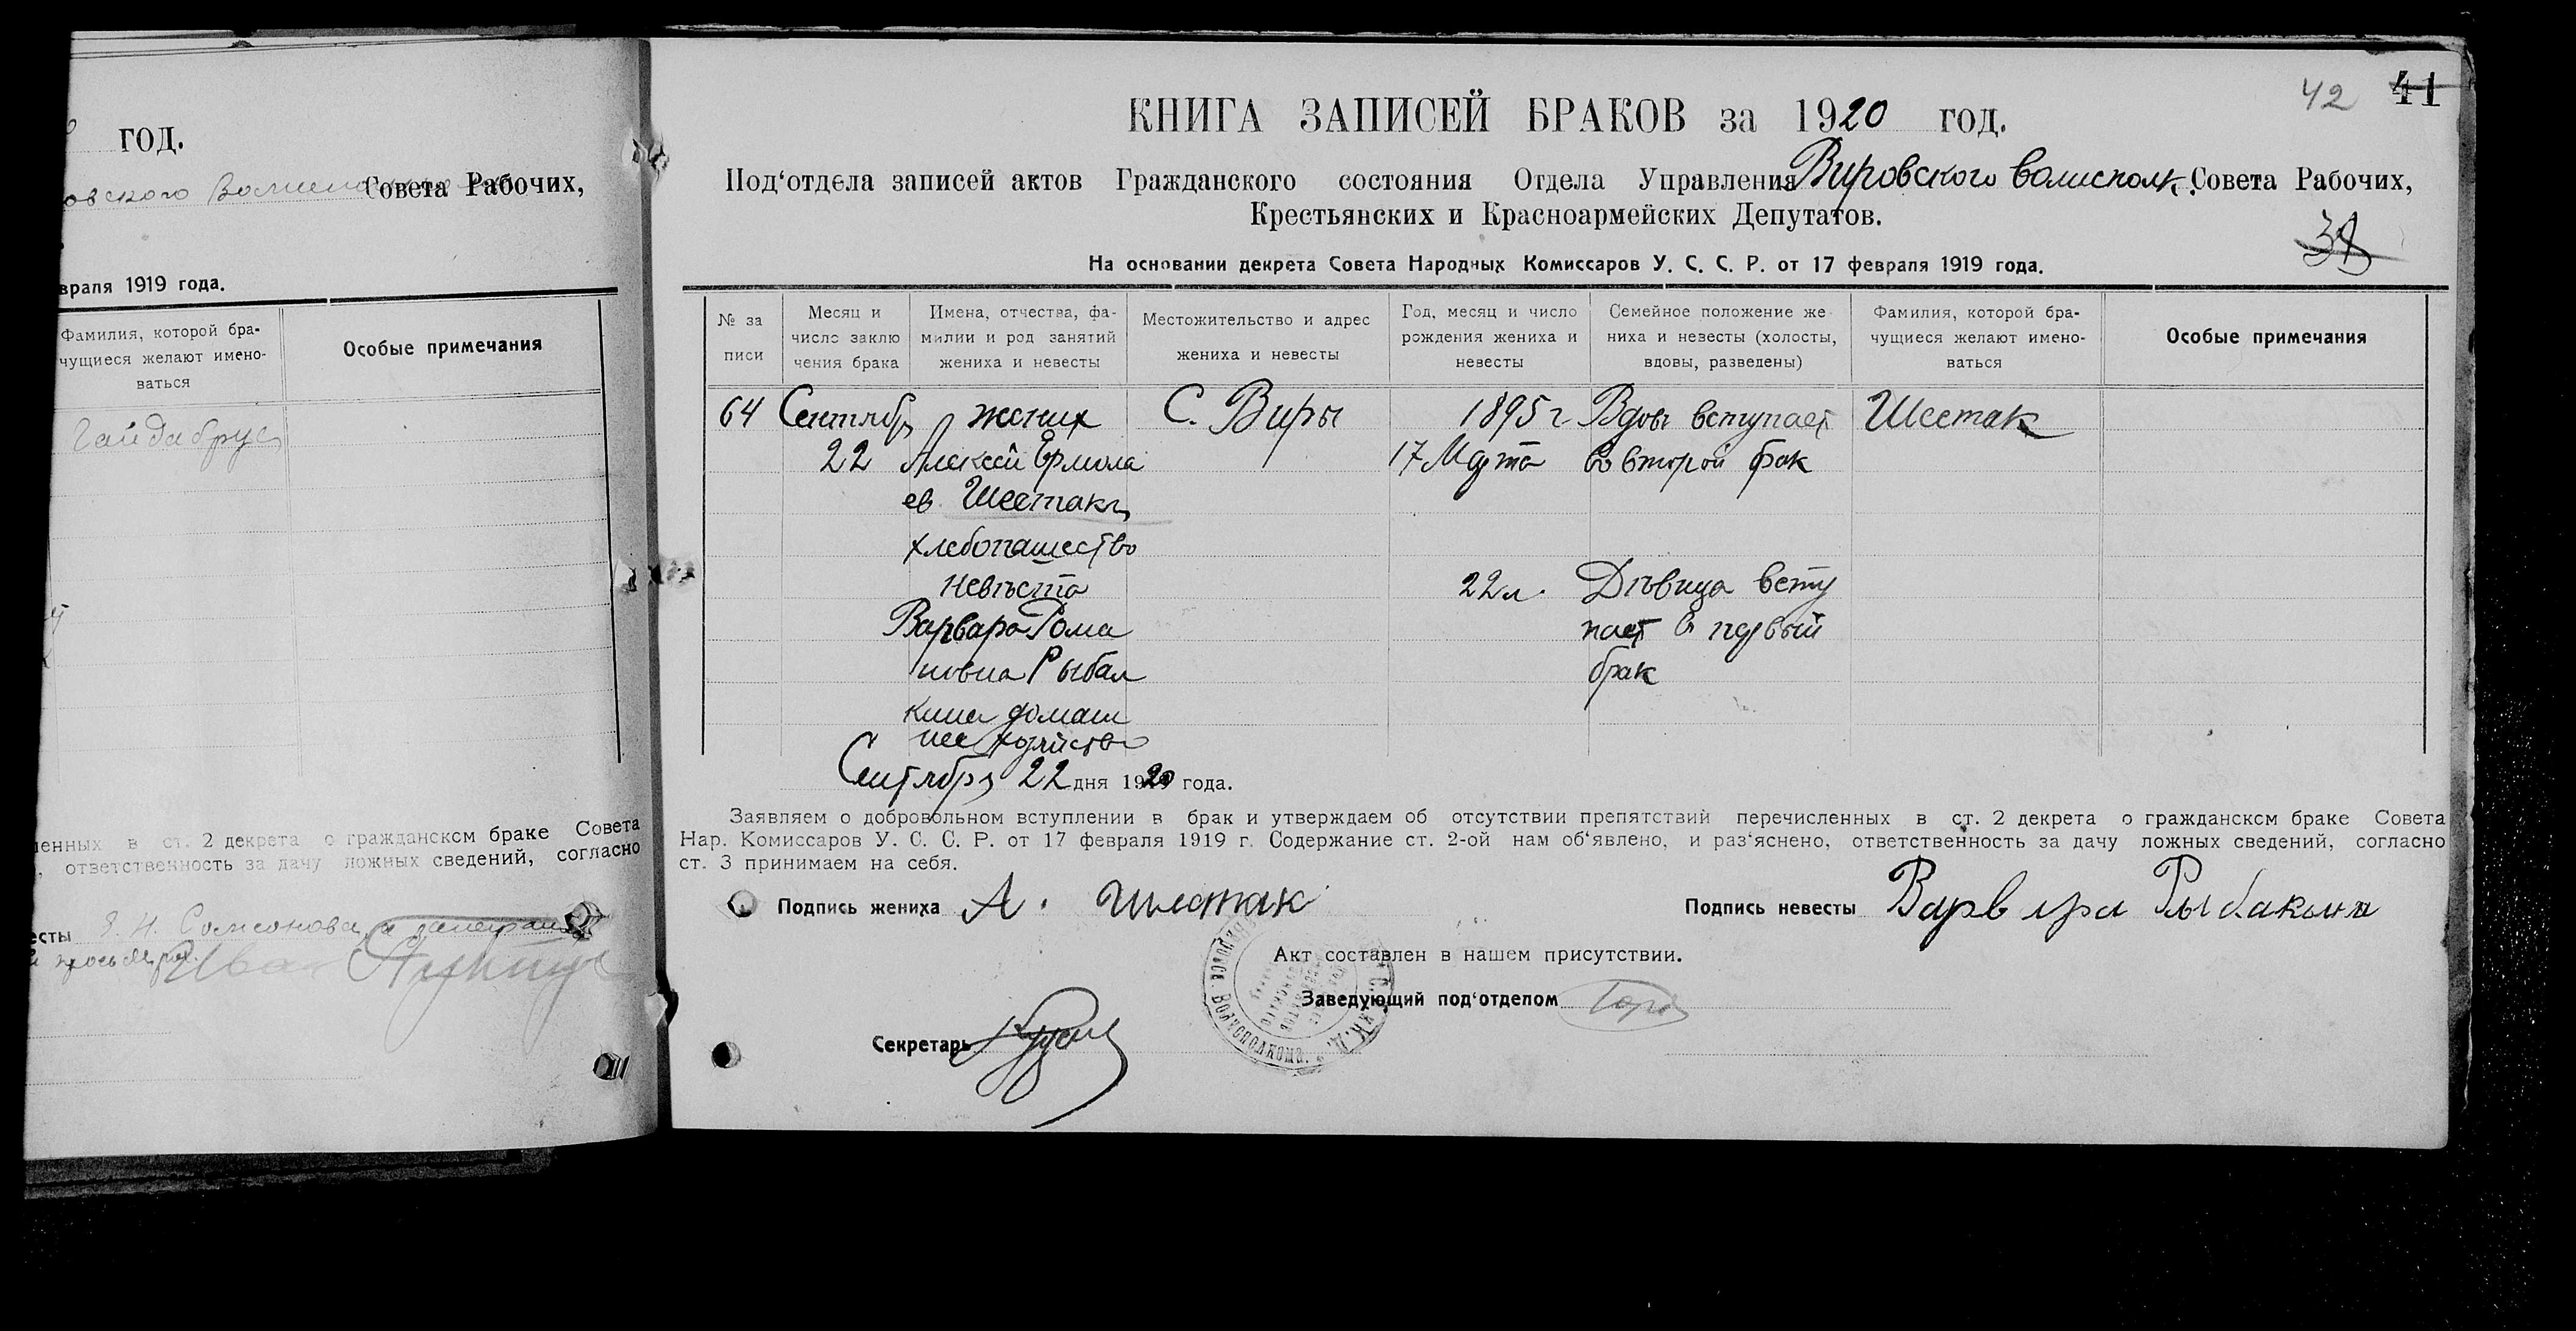 год.
овского Совета Рабочих,
враля 1919 года.
Фамилия, которой бра-
чущиеся желают имено-
ваться
Особые примечания
Гайдабрус
ленных в ст. 2 декрета о гражданском браке Совета
ответственность за дачу ложных сведений, согласно
есты
42 41
КНИГА ЗАПИСЕЙ БРАКОВ за 1920 год.
Под‘отдела записей актов Гражданского состояния Отдела Управления Вировского волисполк. Совета Рабочих,
Крестьянских и Красноармейских Депутатов.
На основании декрета Совета Народных Комиссаров У. С. С. Р. от 17 февраля 1919 года.
№ за
писи
Месяц и
число заклю
чения брака
Имена, отчества, фа-
милии и род занятий
жениха и невесты
Местожительство и адрес
жениха и невесты
Год, месяц и число
рождения жениха и
невесты
Семейное положение же
ниха и невесты (холосты,
вдовы, разведены)
Фамилия, которой бра-
чущиеся желают имено-
ваться
Особые примечания
64 Сентябр жених С. Виры 1895 г. Вдов вступает Шестак
22 Алексей Ермола 17 Марта во второй брак
ев Шестакъ
хлебопашество
Невѣста 22 л. Дѣвица всту
Варвара Рома пает в первый
новна Рыбал брак
кина домаш
нее хозяйство
Сентября 22 дня 1920 года.
Заявляем о добровольном вступлении в брак и утверждаем об отсутствии препятствий перечисленных в ст. 2 декрета о гражданском браке Совета
Нар. Комиссаров У. С. С. Р. от 17 февраля 1919 г. Содержание ст. 2-ой нам об‘явлено, и раз‘яснено, ответственность за дачу ложных сведений, согласно
ст. 3 принимаем на себя.
Подпись жениха А. Шестак Подпись невесты Варвара Рыбакына
Акт составлен в нашем присутствии.
Заведующий под‘отделом
Секретарь